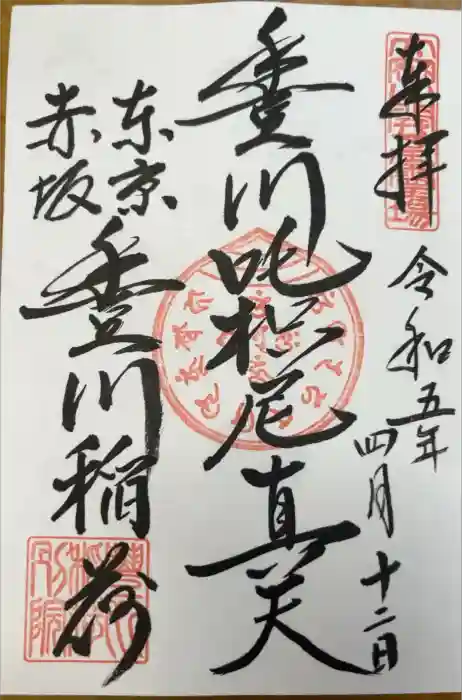 奉拝
令和五年
四月十二日
豊川吒枳尼真天
东京
赤坂
豊川稲荷